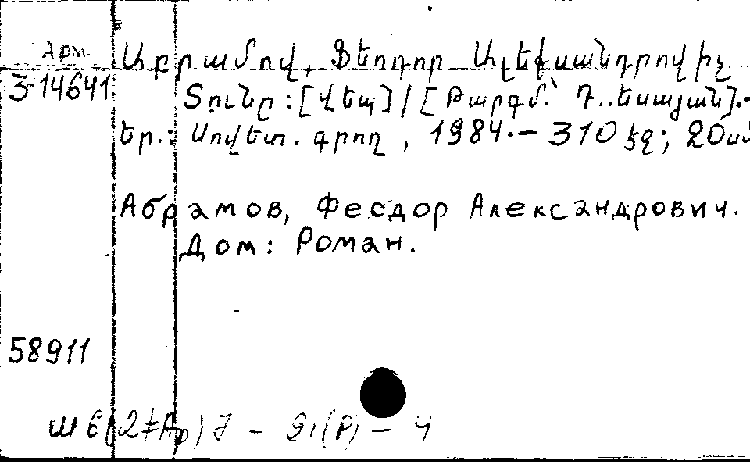 Арм
Աբրամով, Ֆեոդոր Ալեքսանդրովիչ
3-14641 Տունը : [Վեպ] / [Թարգմ.՝ Դ. Եսայան].-
Եր.: Սովետ. գրող, 1984.- 310 էջ; 20սմ
Абрамов, Феодор Александрович.
Дом: Роман.
58911